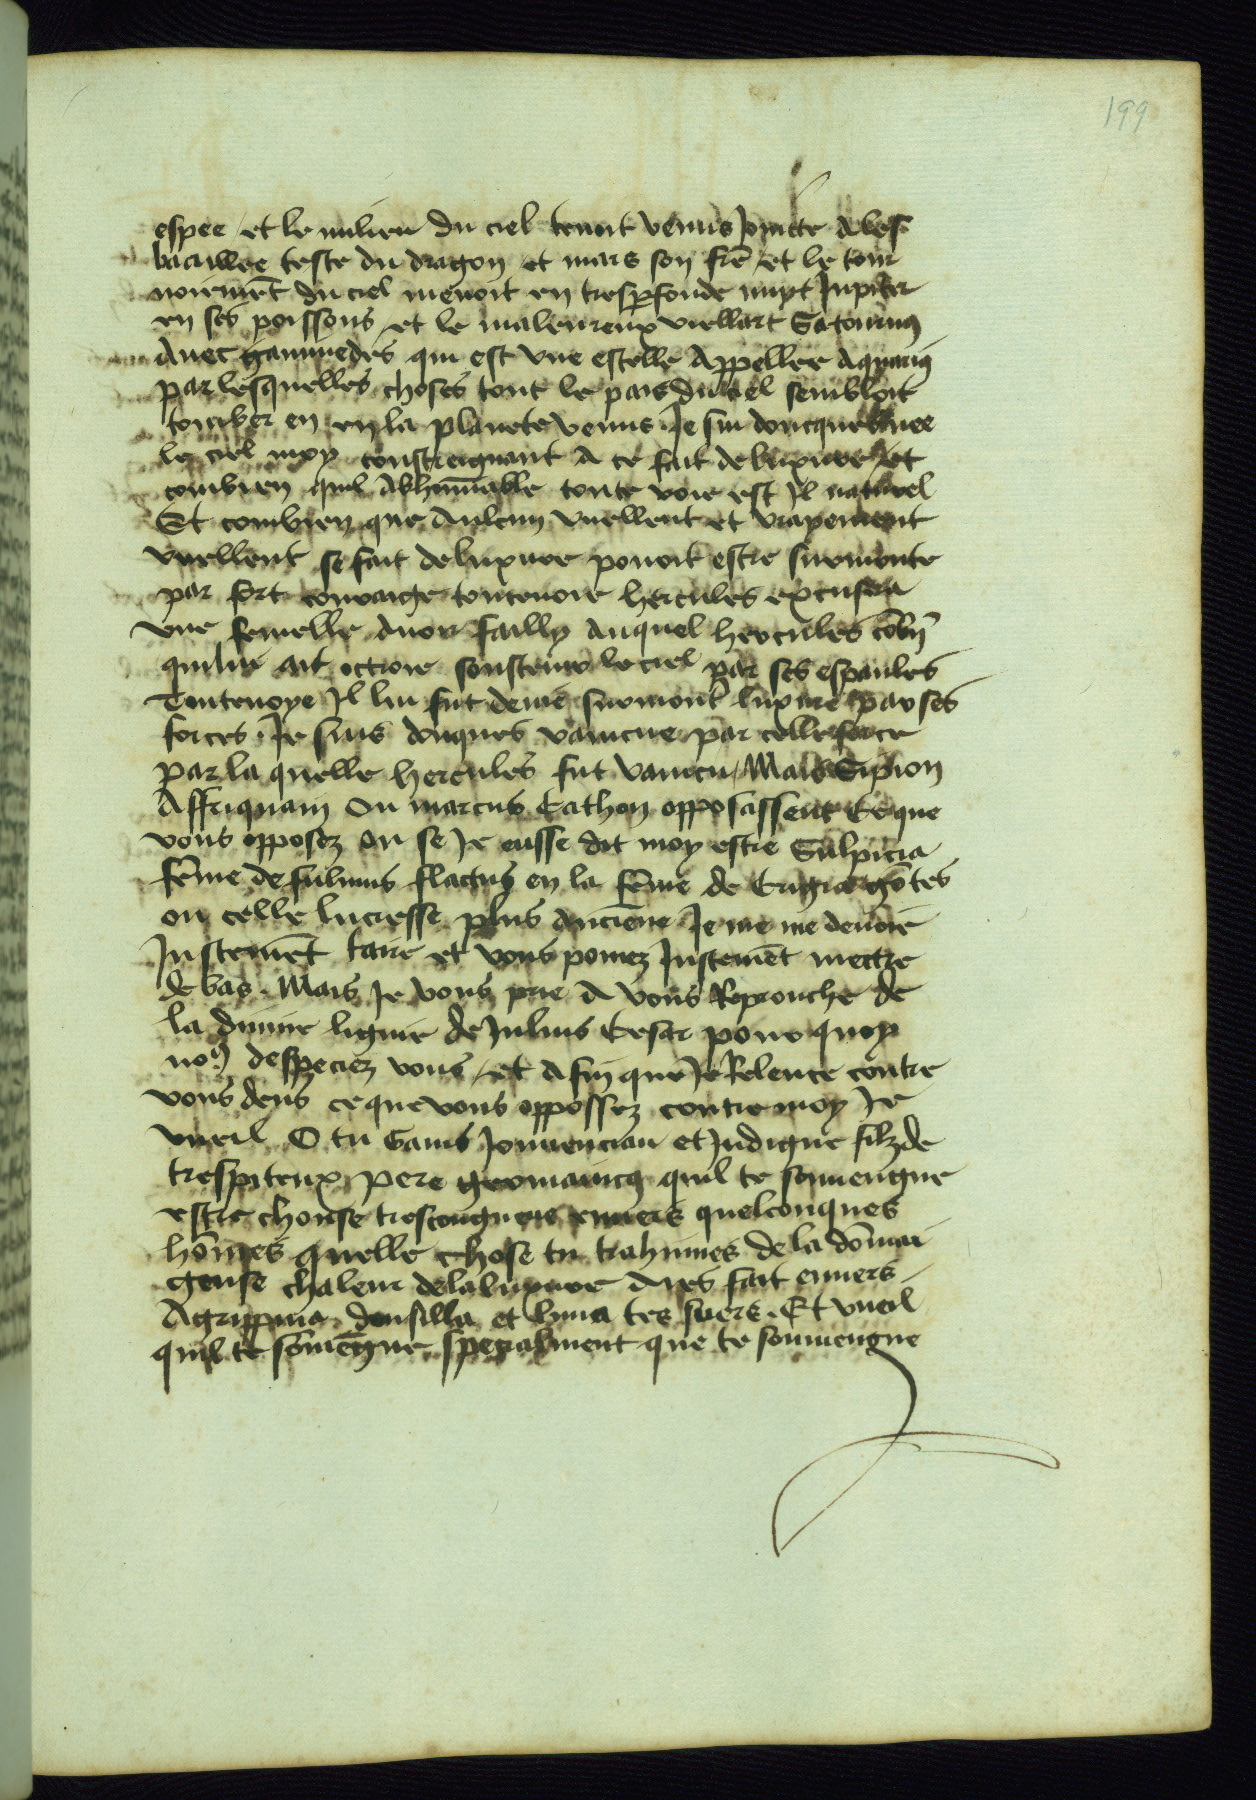 199
espee et le milieu du ciel tenoit venus joincte a les
baaillee teste du dragon et mars son frē et le tour
noiemēt du ciel menoit en tresp̄fonde nuyt Jupiter
en ses poissons et le maleureux viellart Satournus
Avec ganimedes qui est vne estelle Appellee Aquarius
par lesquelles choses tout le pais du ciel sembloit
tomber en en la planete venus Je sui doncques
le ciel moy constreignant A ce fait de luxure et
combien quil Abhominable toute voie est Il naturel
Et combien que Aulcun vuellent et vrayement
vuellent se fait de luxure pouoit estre surmonte
par fort couraige toutevoie hercules excusera
vne femelle Auoir failly Auquel hercules cōbn̄
quil lui ait octroie soustenir le ciel par ses espaules
Toutevoye Il lui fut deme surmont luxure par ses
forces. Je suis doncques vaincue par celle force
par la quelle hercules fut vaincu. Mais Sipion
Affriquain Ou marcus Cathon opposassent Ce que
vous opposez ou se Je eusse dit moy estre Sulpicia
fēme de fuluius flactus en la fēme de
ou celle lucresse plus Anciēne Je me me deuoie
Justemēt taire et vous pouiez Justemēt mectre
de bas. Mais Je vous prie A vous Reprouche de
la diuine lignie de Julius Cesar pour quoy
no9 despeciez vous et Afin que Je Relence contre
vous deus ce que vous oppossez contre moy Je
vueil O tu Gauis Jouuencian et Indigne filz de
trespiteux pere germanicus quil te souuengne
estre chouse trescongneue enuers quelconques
hōmes quelle chose tu trahinnes de la dōmai
geuse chaleur de la luxure Aies fait enuers
Agrippina drusilla et liuia tes suers. Et vueil
quil te souuēgne specialment que te souuiengne